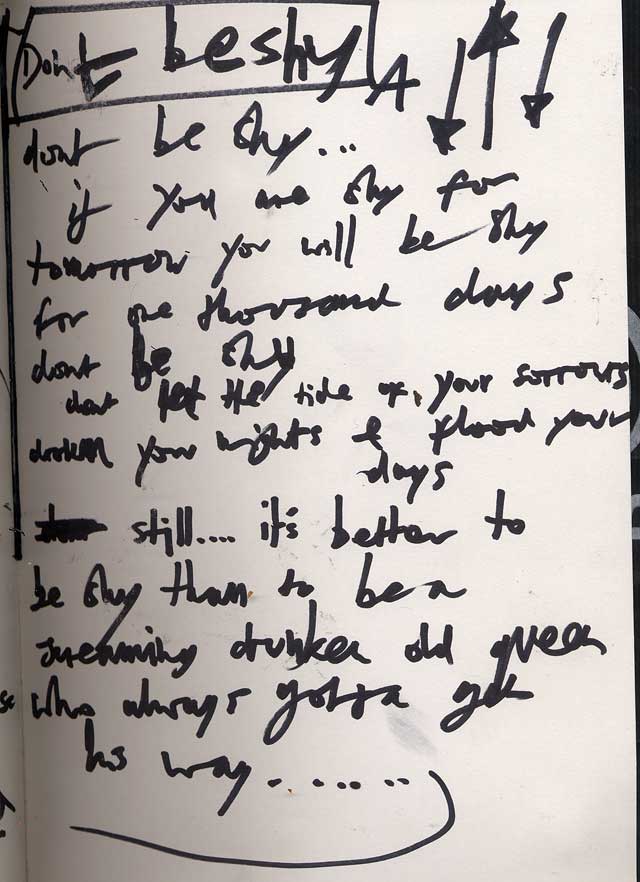 Dont be shy A
dont be shy...
if you are shy for
tomorrow you will be shy
for one thousand days
dont be shy
dont let the tide of your sorrows
drown your nights & flood your
days
still.... it's better to
be shy than to be a
screaming drunken old queen
who always gotta get
his way.......